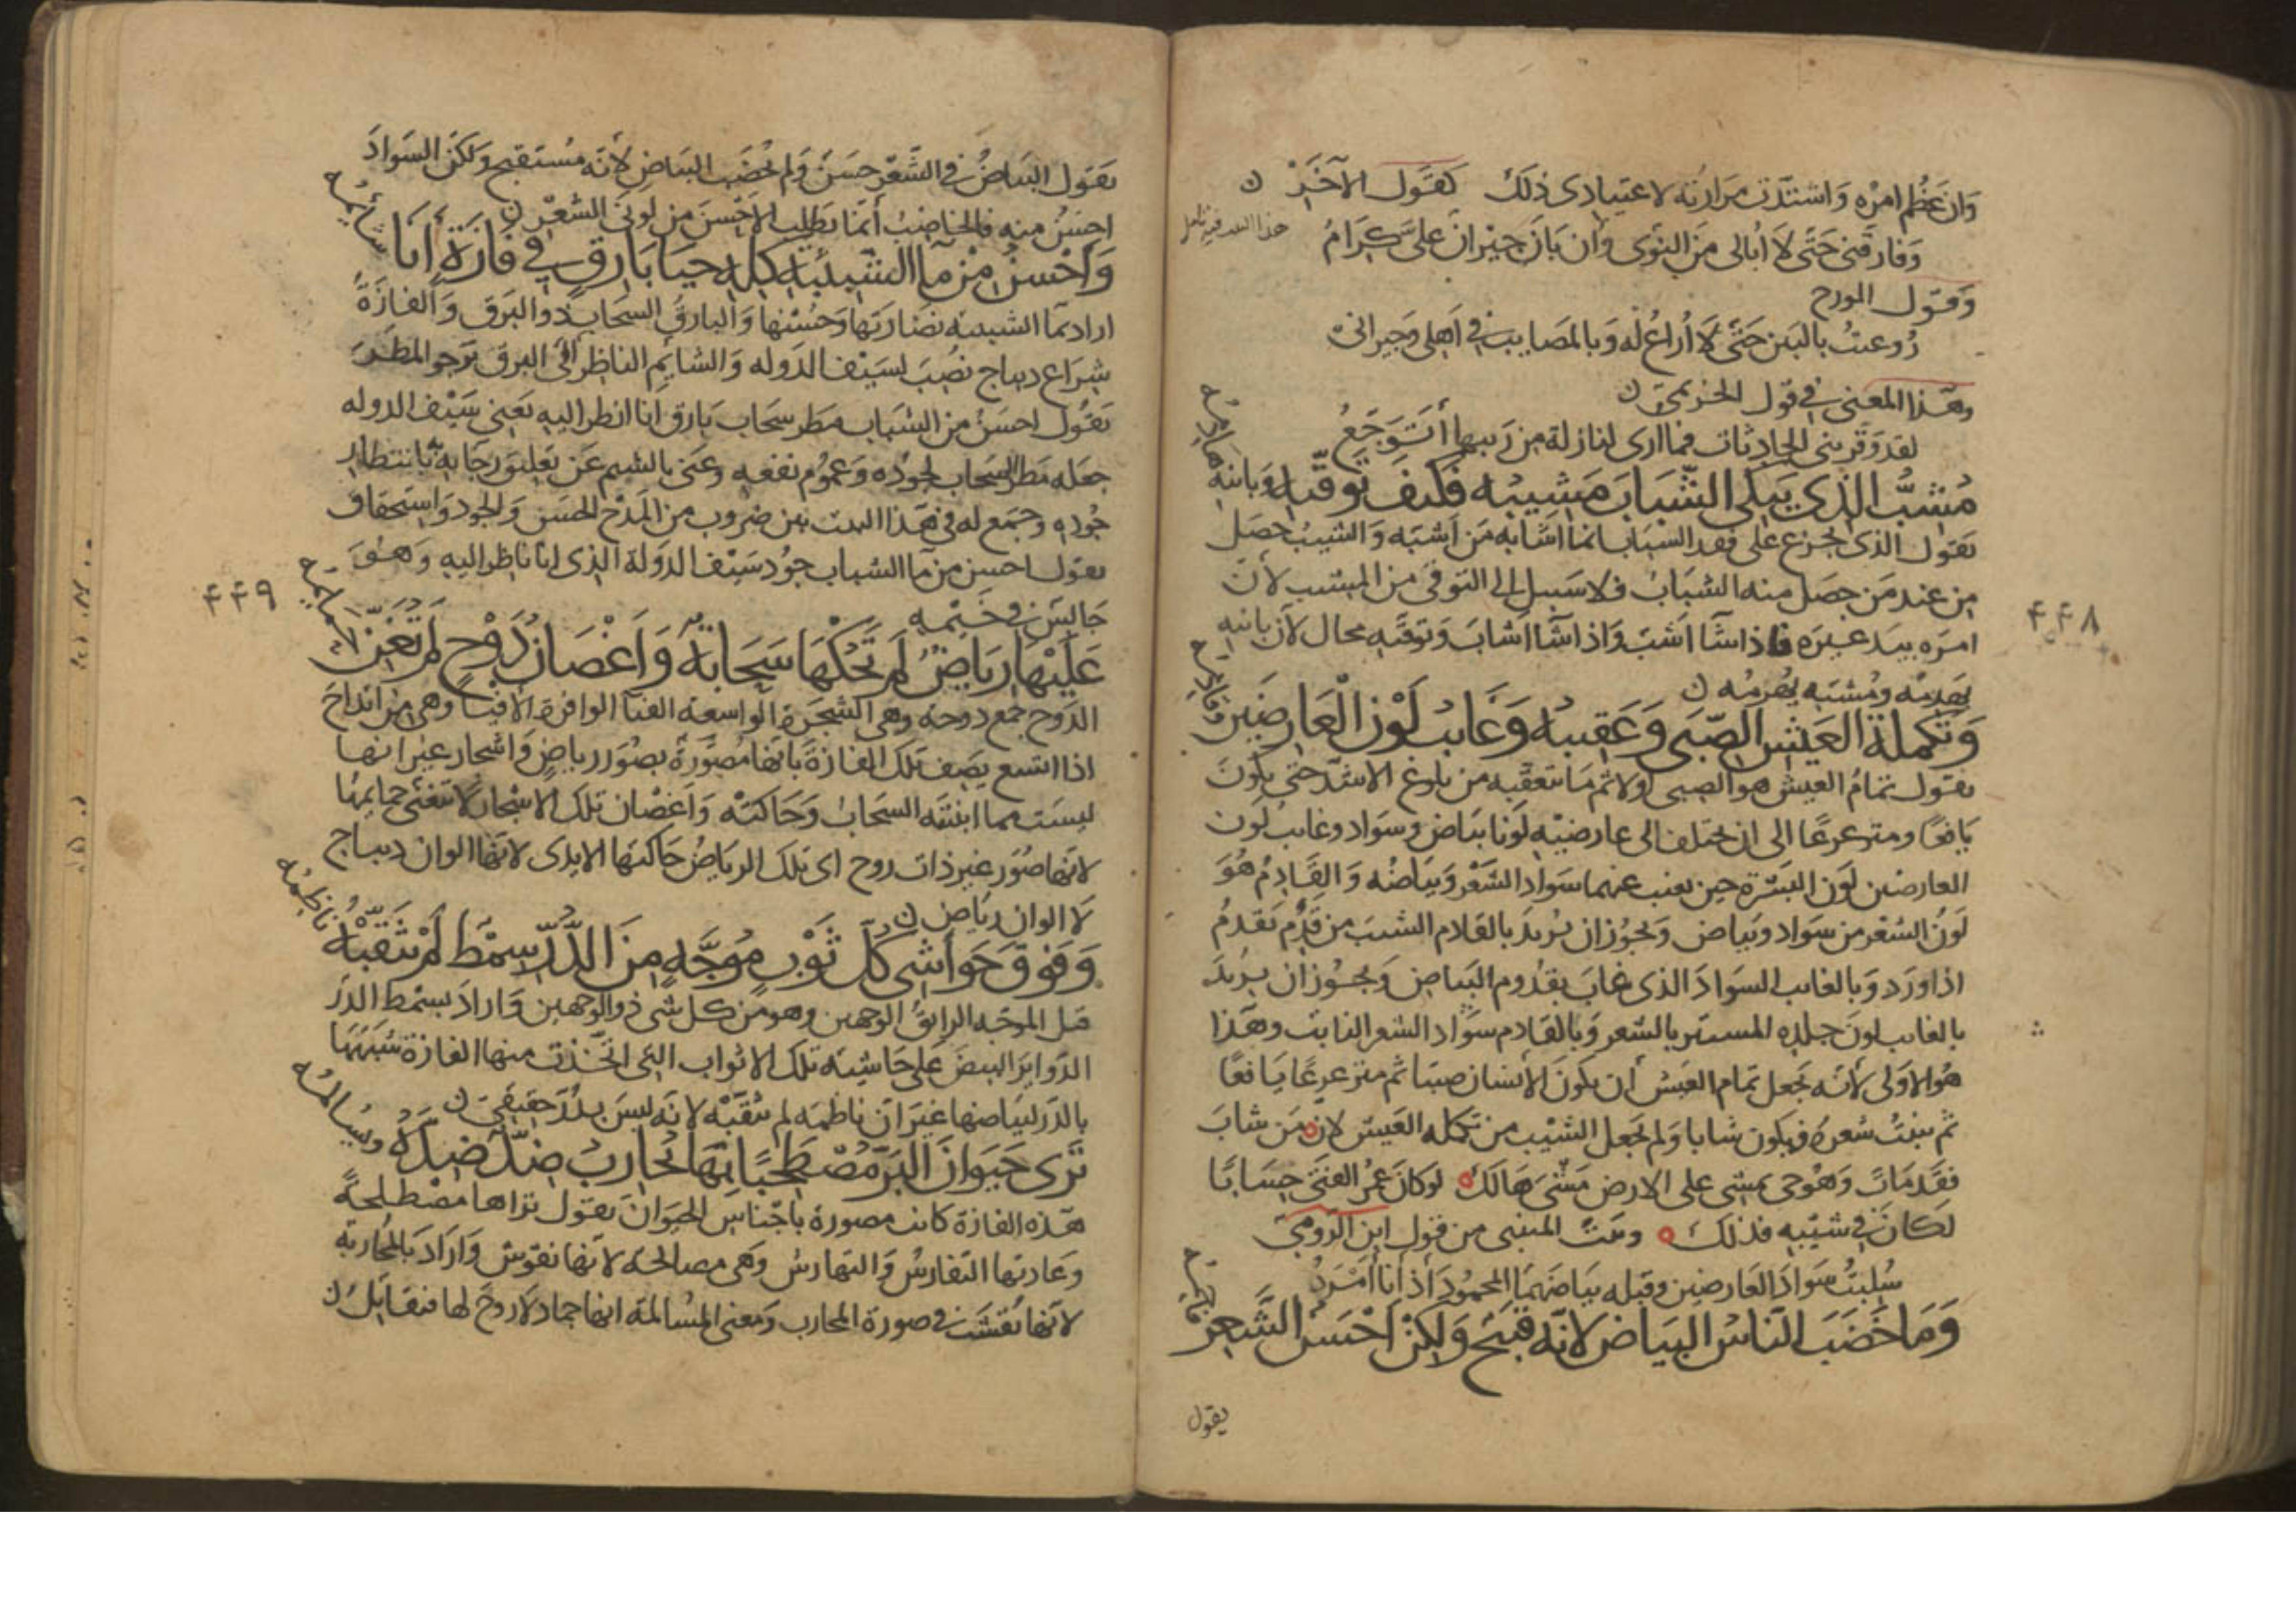 وَان عَظُم امرُه وَاشتدّت مرَارتُه لاعتيادى ذلك كقَول الآخَر ن
وَفارقنى حَتّى لا أبالى مَن النوى وَان بَانَ جيرانٌ علىّ كِرَامُ
هذا البيت
وَقول المورج
رُوعتُ بالبَين حَتّى لا أُراعُ له وَبالمصايب فى أهلى وَجيرانى
وهذا المعنى فى قول الخريمىّ ن
لقد وَقّرتنى الحادثات فما ارى لنازلة من رَيبها أتوَجَّعُ
مُشبُّ الذى يبكى الشّبابَ مَشيبُه فكيف توقّيه وَبانيه هادمُه
يقول الذى يجزع على فقد الشباب انما اشابه مَن اَشبّه وَالشيبُ حصَل
من عند مَن حصَل منه الشبابُ فلا سَبيل الى التوقى من المشيب لأنّ
امرَه بيد غيره فاذا شآ اَشبّ وَاذا شآ اَشابَ وَتوقّيه محال لأنّ بانيه
يَهدِمُه ومُشبّه يُهرِمُه ن
وَتكملة العَيش الصّبَى وَعَقيبُه وَغايبُ لَوْن العَارضَين وقادمُه
يقول تمامُ العيش هو الصبى اوّلا ثم مَا يتعقّبه من بلوغ الاشدّ حتى يكونَ
يَافعًا ومترعرعًا الى ان يختلف الى عارضَيْه لونا بيَاض وسَواد وغايبُ لَون
العارضين لَون البشَرة حين يغيب عنهما سَوادُ الشَعْر وَبيَاضُه وَالقَادِمُ هُوَ
لَونُ الشعْر من سَواد وبَياض وَيجُوز ان يُريدَ بالقادم الشيبَ من قَدَم يَقدُمُ
اذا وَرَد وَبالغايب السَوادَ الذى غابَ بقُدوم البَياض وَيجُوز ان يريدَ
بالغايب لونَ جلده المستتر بالشعر وَبالقادم سَوَاد الشعر النابت وهَذا
هُو الأولى لأنّه يجعل تمام العَيش أن يكونَ الأنسَان صبيّا ثم مترعرعًا يَافعًا
ثم ينبتُ شعرُه فيكون شابا وَلم يجعل الشَيْب من تكمله العَيش لأن مَن شابَ
فقَد مَاتَ وَهُو حى يمشى على الارض مَشىَ هَالكٍ لو كانَ عمرُ الفتَى حِسَابًا
لكانَ فى شيبه فذلكَ وبيتُ المتنبى من قول ابن الرّومىّ
سُلبتُ سَوادَ العَارضين وقبله بيَاضَهُما المحمُودَ اذ أنا أمرَدُ
وَمَا خَضَبَ النّاسُ البيَاضَ لانّه قبيحٌ وَلكن اَحْسَنُ الشَّعر فاحمُه
يقول
٤٤٨
يقول البيَاضُ فى الشّعْر حسَنٌ وَلم يُخضَب البَياضُ لأنّه مُستقبح وَلكنّ السَوادَ
احسَنُ منه فالخاضبُ انّما يَطلب الاحْسنَ من لونَى الشعْر ن
وَاَحْسنُ مِنْ مآ الشّبيبَة كلّه حَيَا بَارقٍ فى فازَةٍ أنَا شائمُه
اراد بمآ الشبيبه نضارتَها وَحُسْنَها وَالبارقُ السحَاب ذو البَرق وَالفازةُ
شِرَاع ديباج نصُبَ لسَيْف الدَوله وَالشايم الناظر الى البرق يَرجو المطَرَ
يَقُول احسَنُ من الشبَاب مطر سحَاب بَارق انا انظر اليه يَعنى سَيْف الدوله
جعَله مَطَر السحَاب لجُوده وَعمُوم نفعه وعَنى بالشيم عَن تعليق رجَايه بانتظار
جُوده وجمَع له فى هَذا البيت بَين ضروب من المَدْح الحُسْن وَالجود وَاستحقاق
يقول احسن من مآ الشباب جُود سَيْف الدَولة الذى انا ناظر اليه وَهُوَ
جَالِس فى خَيمه
عَليْها ريَاضٌ لَم تَحُكْهَا سَحَابةٌ وَاَغْصَانُ دَوْح لَم تُغَنّ حَمائمُه
الدَوح جمع دوحه وَهى الشجَرة الواسعة العنآ الوافرة الافيآ وهى من انداحَ
اذا اتسع يَصِف تلك الفازةَ بَانّها مُصَوّرةٌ بصُوَر رياضٍ وَاشجار غير انها
ليسَت مما انبتَه السحَابُ وَحَاكتْه وَاَغصَان تلك الاشجار لا تتغنّى حمايمُها
لانّها صُوَر غير ذات روح اى تلك الريَاضُ حَاكتها الايدى لانّها الوان ديباج
لا الوان ريَاض ن
وَفَوقَ حَوَاشى كُلّ ثَوْبٍ مُوجَّهٍ مِنَ الدُّرّ سِمْطٌ لم يُثَقّبْهُ نَاظِمُه
قيل الموجّه الرايقُ الوجهين وهو من كل شى ذو الوجهين وَارادَ بسمط الدرّ
الدَواير البيضَ عَلى حَاشيَه تلك الاثواب التى اتخذت منها الفازة شبّهَهَا
بالدّر لبيَاضها غيرَ انّ ناظمَه لم يثقّبْه لانّه ليسَ بدُرّ حقيقىّ ن
تَرَى حَيَوانَ البَرّ مُصْطَلِحًا بهَا يُحَارِبُ ضِدٌّ ضِدَّه ويُسَالمُه
هَذه الفازة كانت مصورة بأجناس الحيَوان يقول تراها مصطلحةً
وعَادتها التفارسُ وَالتهارشُ وَهى مصالحة لانّها نقوش وَارَادَ بالمحاربة
لانّها نُقشَت فى صورة المحارب وَمعنى المسَالمة انها جمادٌ لا روحَ لها فتقَاتِلُ ن
٤٤٩